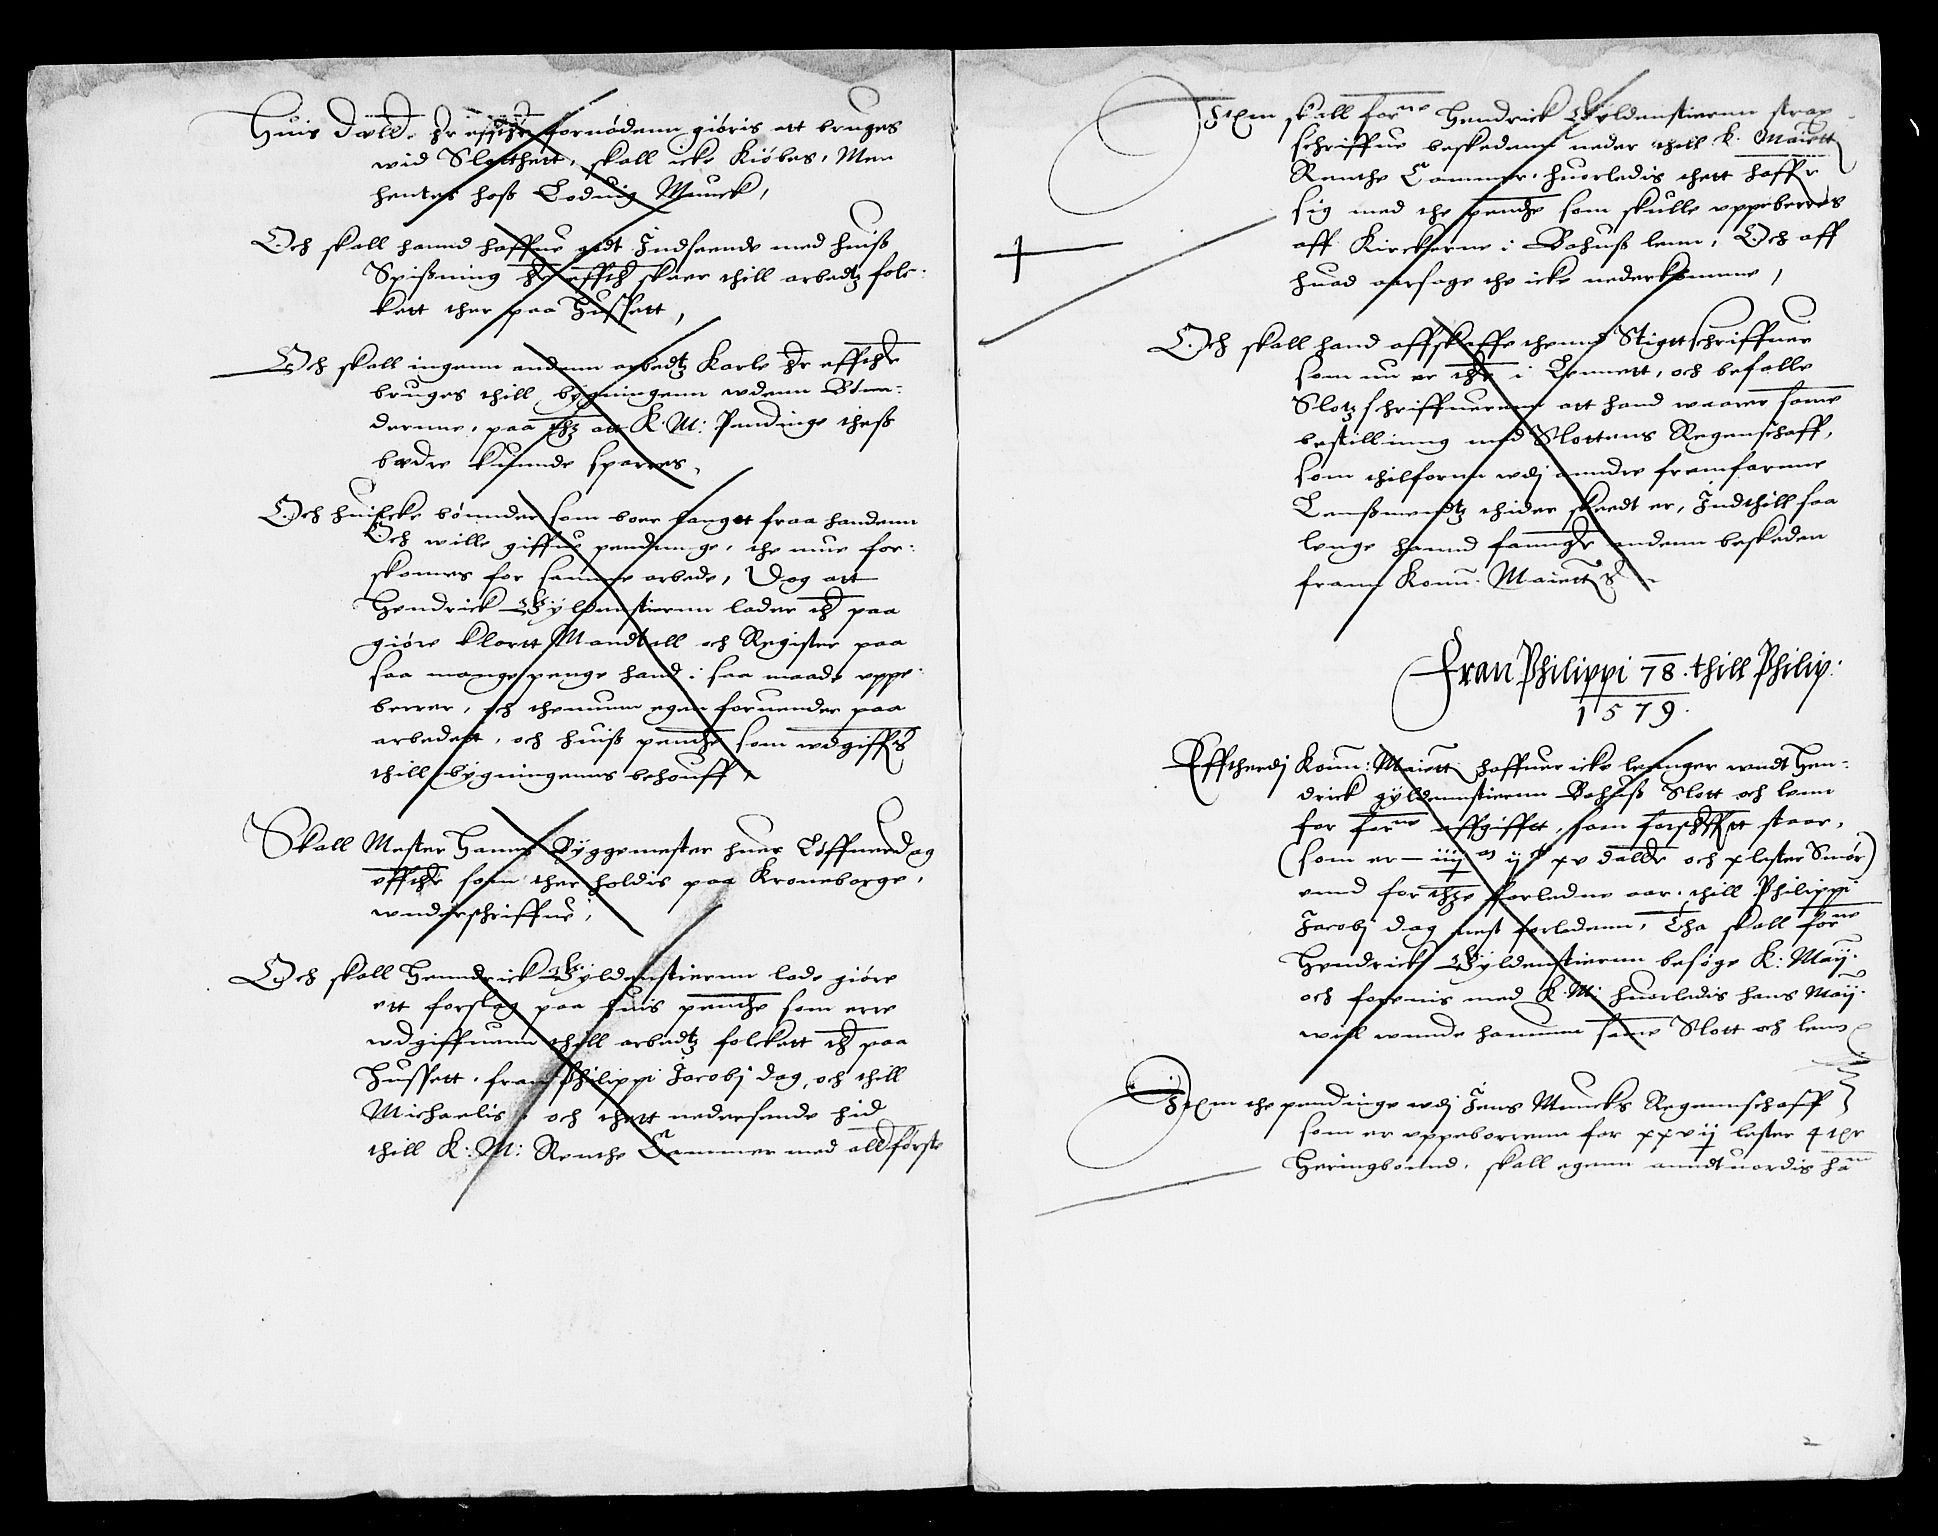 Huis dæld. her effther fornødenn giøris att bruges
wid Slotthett, skall icke kiøbes, Men
hentes hoß Lodwig Munck,
Och skall hannd haffue godt Indseende med huiß
Spißning her effther skeer thill arbedtz fole:
kett ther paa Hussett,
Och skall ingenn andenn arbedtz Karle her effther
bruges thill bygningenn wdenn
dernne, paa thz att K: M: Pendinge theß
bædre kunde sparres,
Och huilcke bønnder som boer langet fraa handenn
Och wille giffue pendninge, the mue for:
skones for samme arbede, Dog att
Hendrick Gyldenstiernn lader ther paa
giøre klartt Mandtall och Register paa
saa mange penge hand i saa maade oppe:
berrer, och themnn egen foruender paa
arbedett, och huiß penge som wdgiffis
thill bygningenns behouff,
Skall Mester Hanns Byggemester huer Løffuerdag
effther som ther holdis paa Kroneborge,
wnderschriffue,
Och skall Henndrick Gyldenstiernn lade giøre
ett forslag paa huis penge som erre
wdgiffuenn thill arbedtz folckett ther paa
Hussett, fran Philippi Jacobj dag, och thill
Michaelis, och thett nedersende hid
thill K: M: Renthe Cammer med alldførste
Item skall forne Hendrick Gyldenstiernn strax
schriffue beskedenn neder thill K. Maiett
Renthe Cammer, huorledis thett haffr
sig med the penge som skulle oppeberres
aff Kirckerne i Bahuß lenn, Och aff
huad aarsage the icke nederkomme,
Och skall hand affskaffe thennd Stigttschriffuer
som nu er ther i Lennett, och befalle
Slotzschriffuerenn att hand waarer same
bestillinng med Slottens Regenschaff,
som thilfornn wdj anndre fremfarnne
Lenßmendtz thider skeedt er, Indthill saa
lenge hannd fanngr andenn beskeden
frann Konn: Maiett
Fran Philippi 78. thill Philip:
1579.
Efftherdj Konn: Maiett haffuer icke lenger wndt Hen-
drick gyldennstiernn Bahuß Slott och lenn
for forne affgifft, som forschreffuit staar,
(som er – iiijm ijc xv daller och x lester Smør)
ennd for thze forledne aar, thill Philippi
Jacobj dag nest forledenn, Tha skall forne
Hendrick Gyldenstiernn besøge K: May:
och forenis med K: M: huorledis hans May:
will wnnde hannum same Slott och lenn
Item the pendinge wdj Jens Muncks Regennschaff
som er oppeborrenn for xxvij lester 4 tnr
Heringbonnd, skall egenn anndtuordis ham